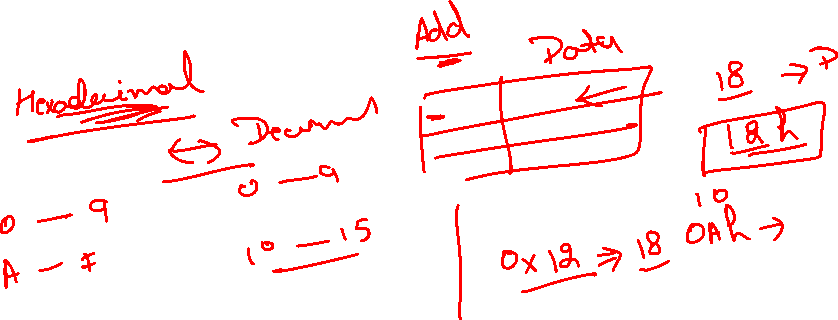 Hexadecimal
↔ Decimal
0 — 9
0 — 9
A — F
10 — 15
Add
Data
18 → ?
12h
0x12 ⇒ 18
10
0Ah →